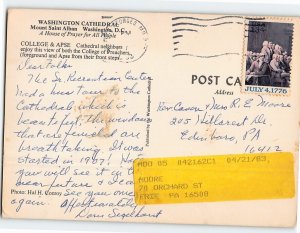 WASHINGTON CATHEDRAL
Mount Saint Alban Washington, D.C.
A House of Prayer for All People
COLLEGE & APSE Cathedral neighbors
enjoy this view of both the College of Preachers,
(foreground and Apse from their front steps.
Dear Folks
The Sr. Recreation Center
had a bus tour to the
Cathedral, which is
beautiful. The windows
that are finished are
breath taking. It was
started in 1907! Hope
you will see it in the
near future & I can
see you once
again. Affectionately,
Photo: Hal H. Conroy
POST CARD
Address
JULY 4, 1776
Rev. Canon & Mrs R. E. Moore
205 Hillcrest Dr
Edinboro, PA
16412
MOO 05 842162C1 04/21/83
MOORE
70 ORCHARD ST
ERIE PA 16508